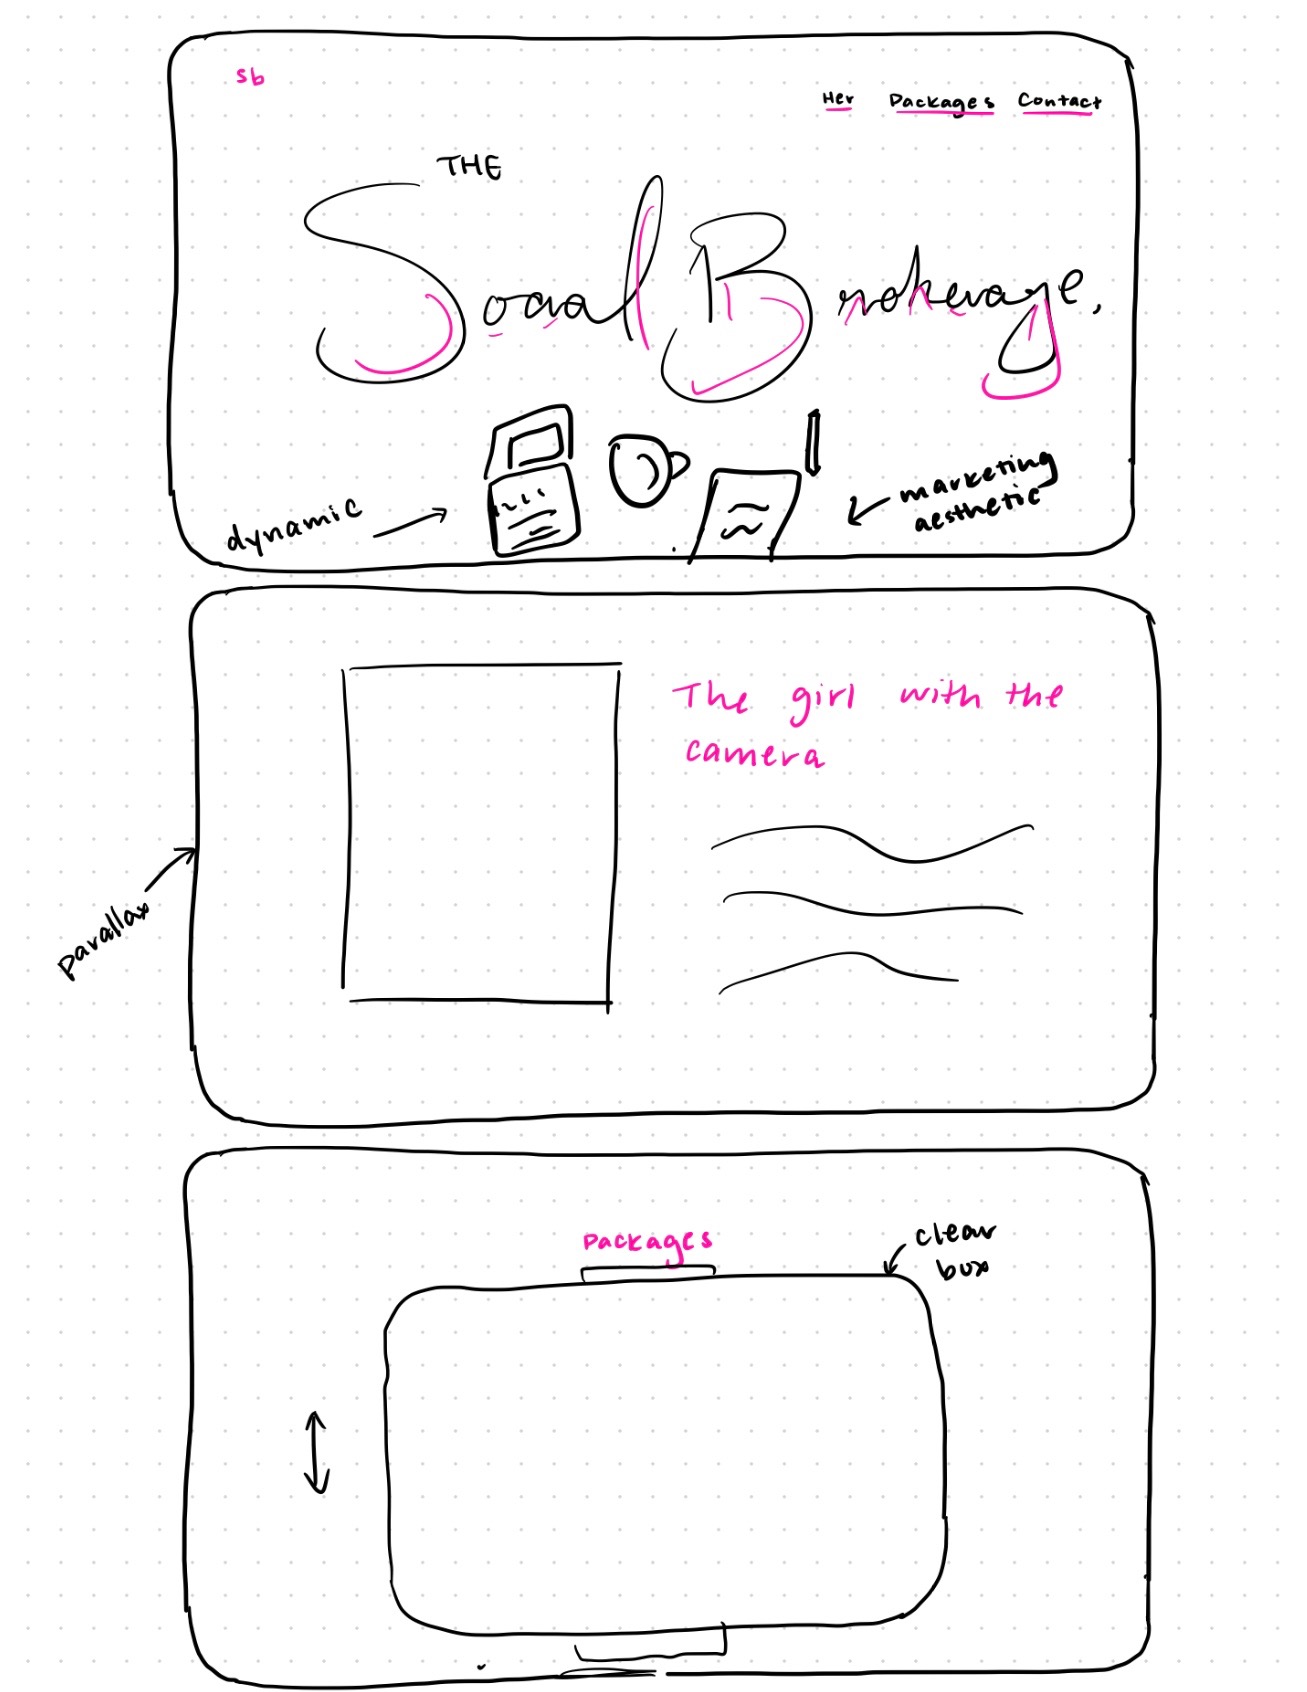 sb
Her Packages Contact
THE
Social Brokerage.
dynamic
marketing
aesthetic
The girl with the
camera
parallax
Packages
clear
box